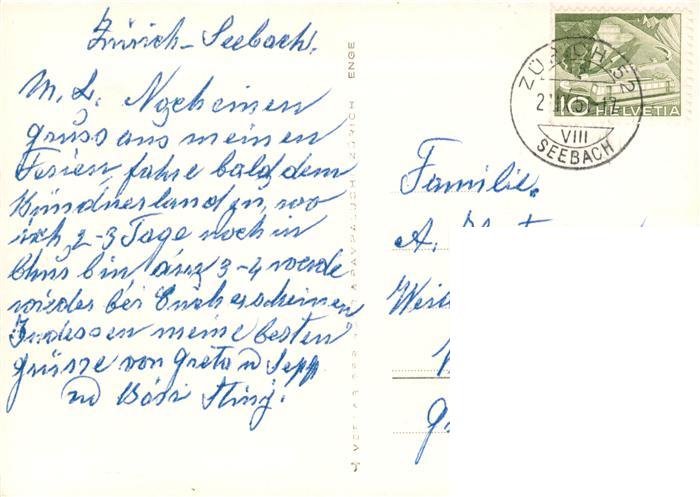 Zürich-Seebach.
M. L. Noch einen
Gruss aus meinen
Ferien, fahre bald dem
Bündnerland zu, wo
ich 2-3 Tage noch in
Chur bin 3-4 werde
wieder bei Euch erscheinen
Indessen meine besten
Grüsse von Greta u Sepp
u
ENGE
ZÜRICH
Familie.
A.
ZÜRICH 52
VIII
SEEBACH
10 HELVETIA